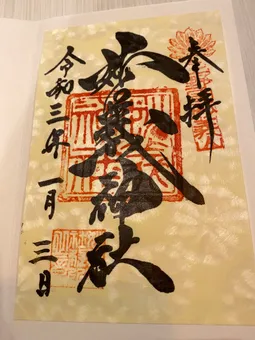 奉拝
妙義神社
令和三年一月三日